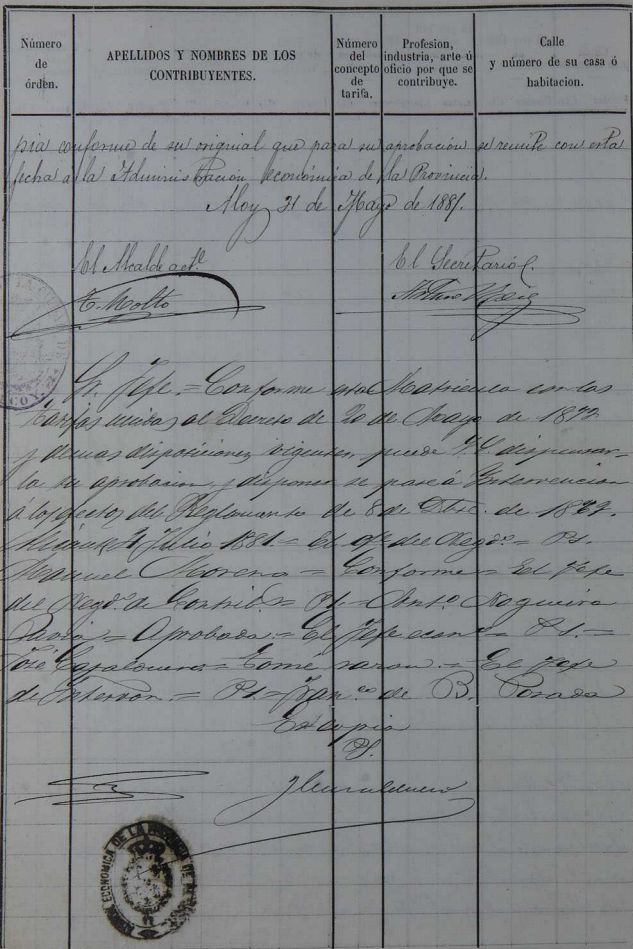 Número de órden.
APELLIDOS Y NOMBRES DE LOS CONTRIBUYENTES.
Número del concepto de tarifa.
Profesion, industria, arte ú oficio por que se contribuye.
Calle y número de su casa ó habitacion.
pia conforme de su original que para su aprobación se remite con esta
fecha a la Administración económica de la Provincia.
Alcoy 31 de Mayo de 1881.
El Alcalde actl.
El Secretario
E. Moltó
Arturo
Sr. Jefe. = Conforme esta Matricula con las
tarifas unidas al Decreto de 20 de Mayo de 1873
y demas disposiciones vigentes, puede V.S. dispensar-
la su aprobacion, y disponer se pase á Intervencion
á los efectos del Reglamento de 8 de
Alicante Julio 1881 = El of. del Negdo. = P.S.
Manuel Moreno = Conforme = El Jefe
del Negdo. de Contribs. = P.S. = Anto. Nogueira
Pavia = Aprobada = El Jefe econo. = P.S. =
José = Tomé razon = El Jefe
de Intervon. = P.S. = Franco. de B. Posada
Es copia
P.S.